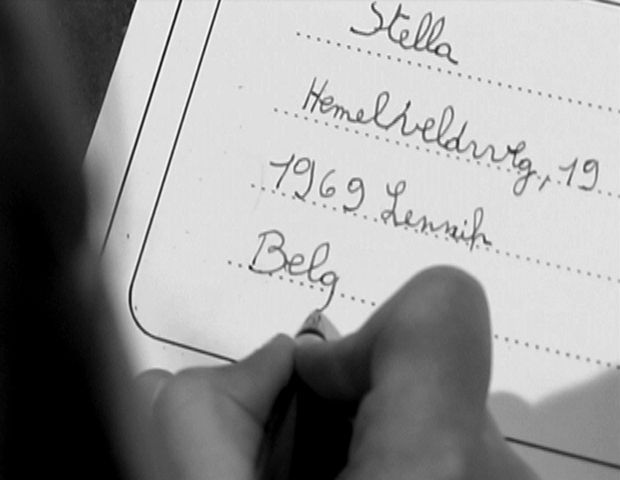 Stella
Hemelhveldweg, 19
1969 Lennik
Belg